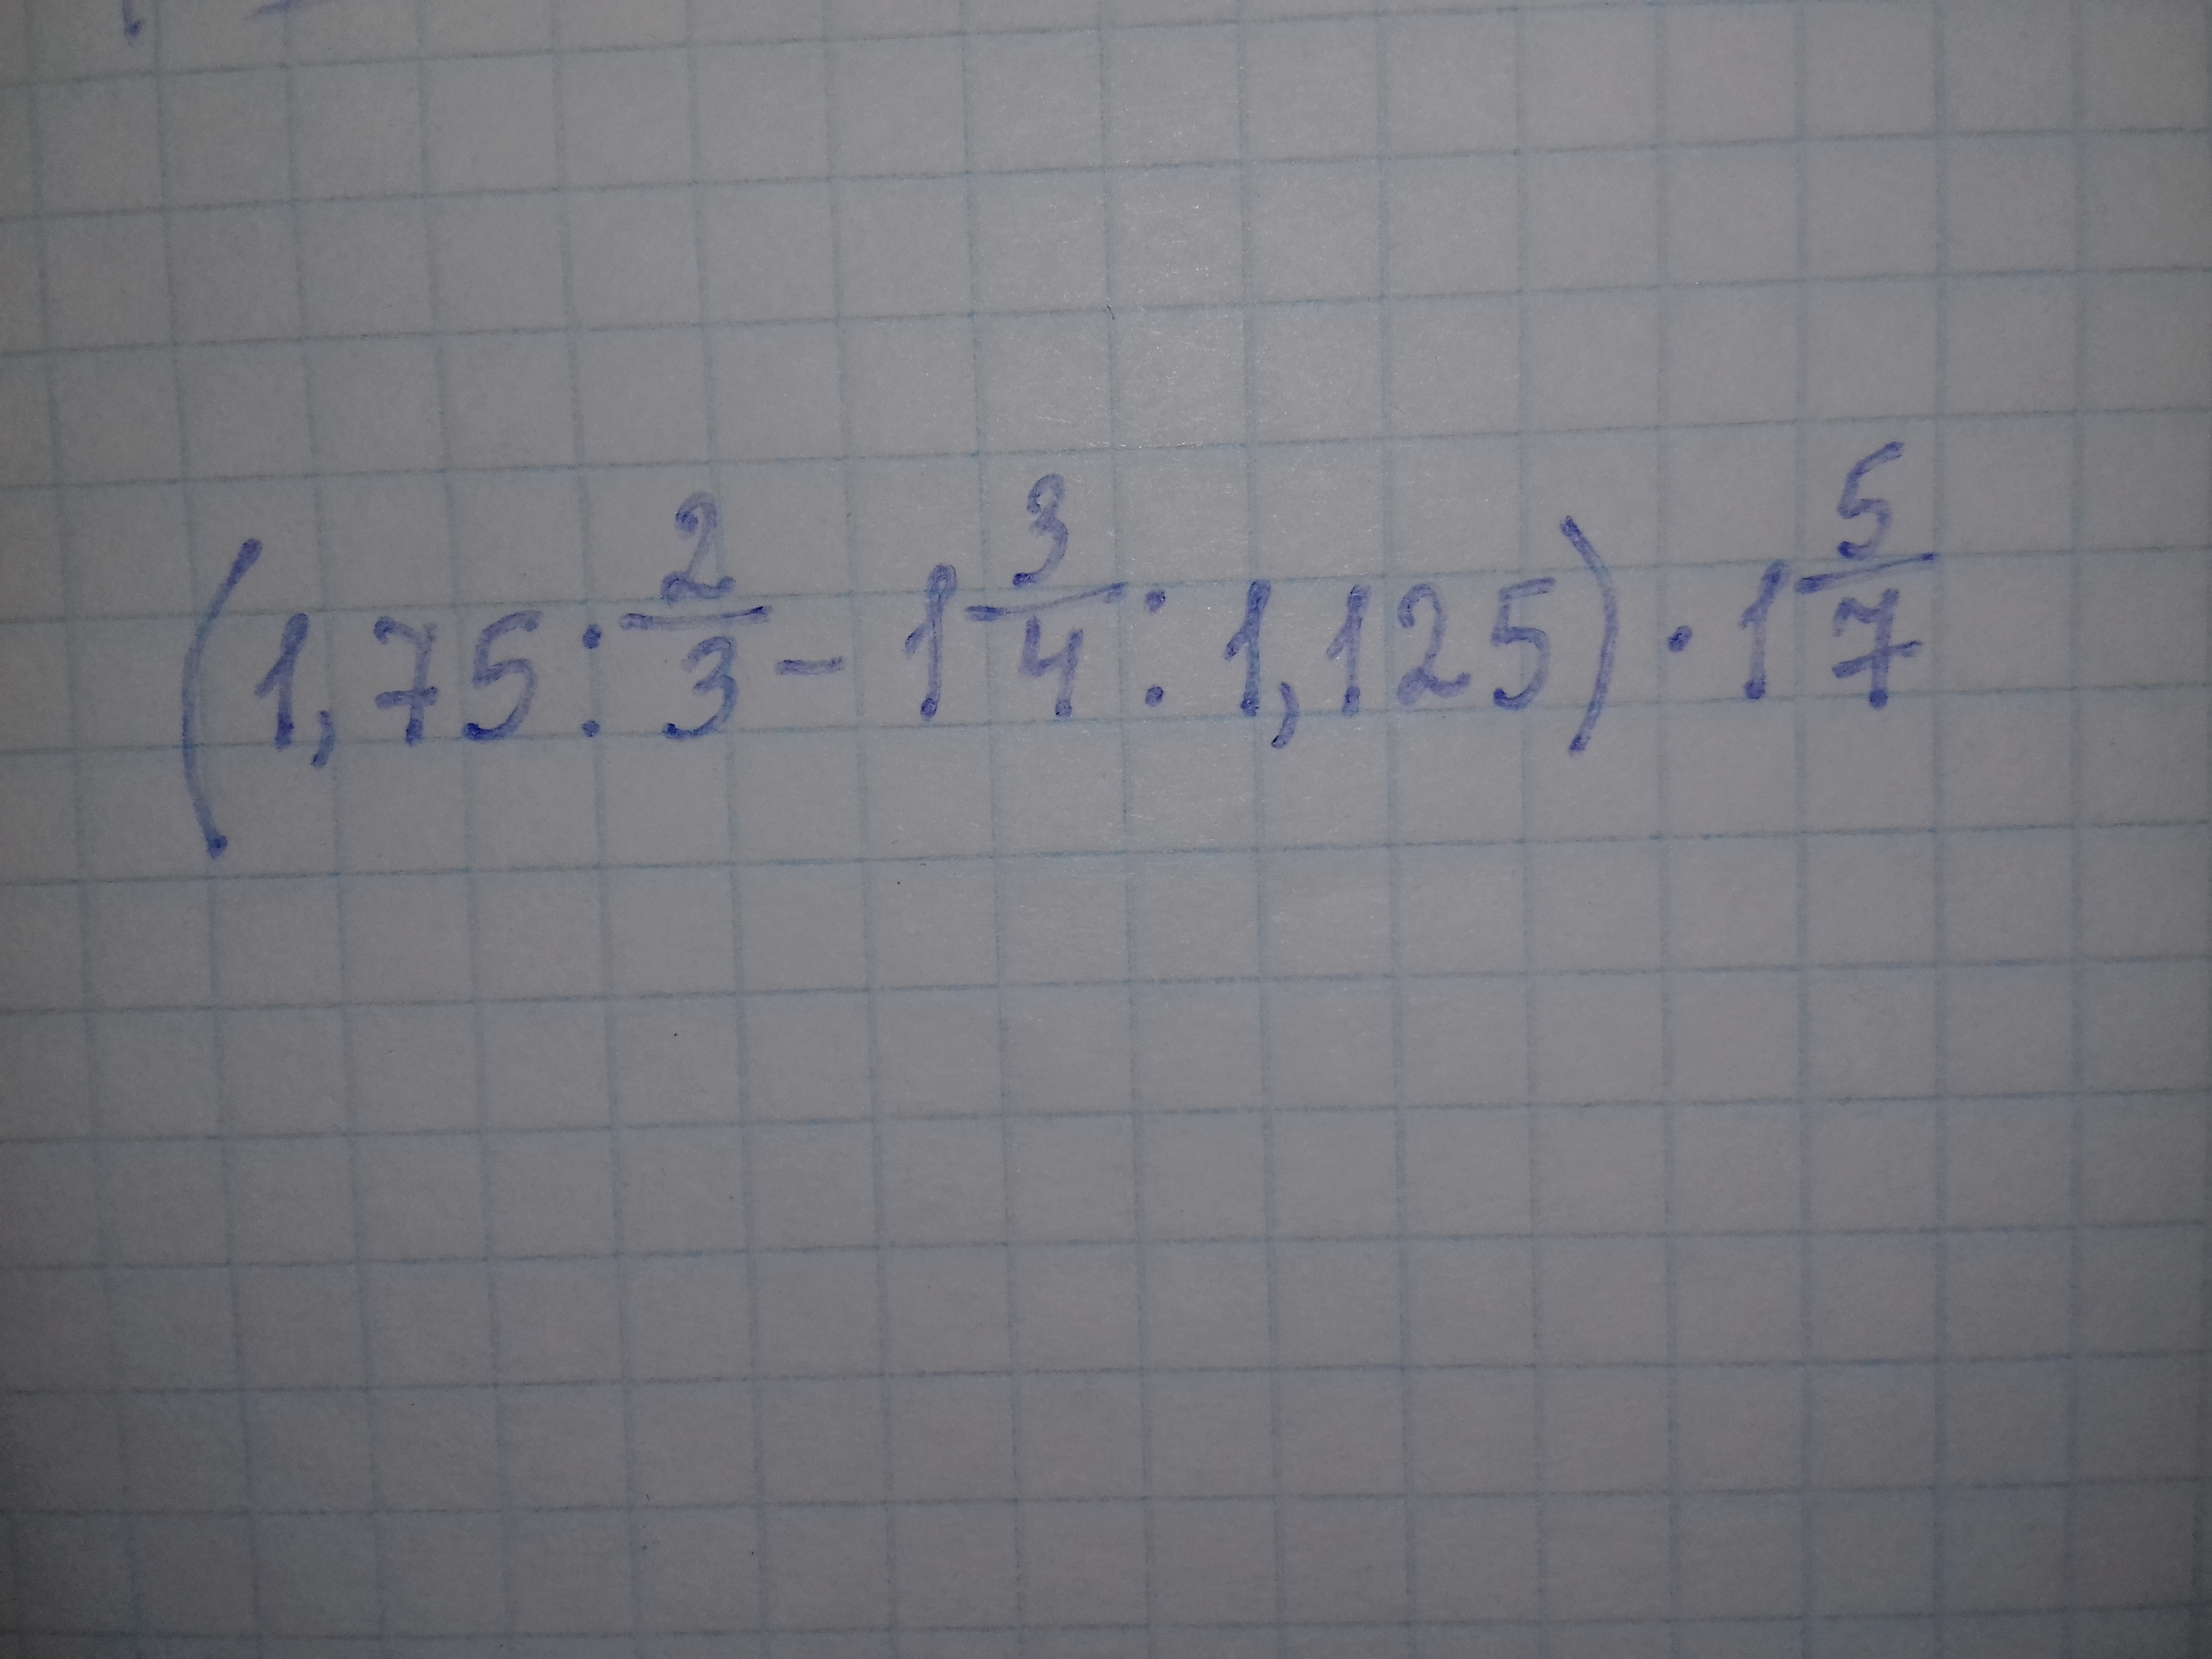 (1,75 : 2/3 − 1 3/4 : 1,125) · 1 5/7